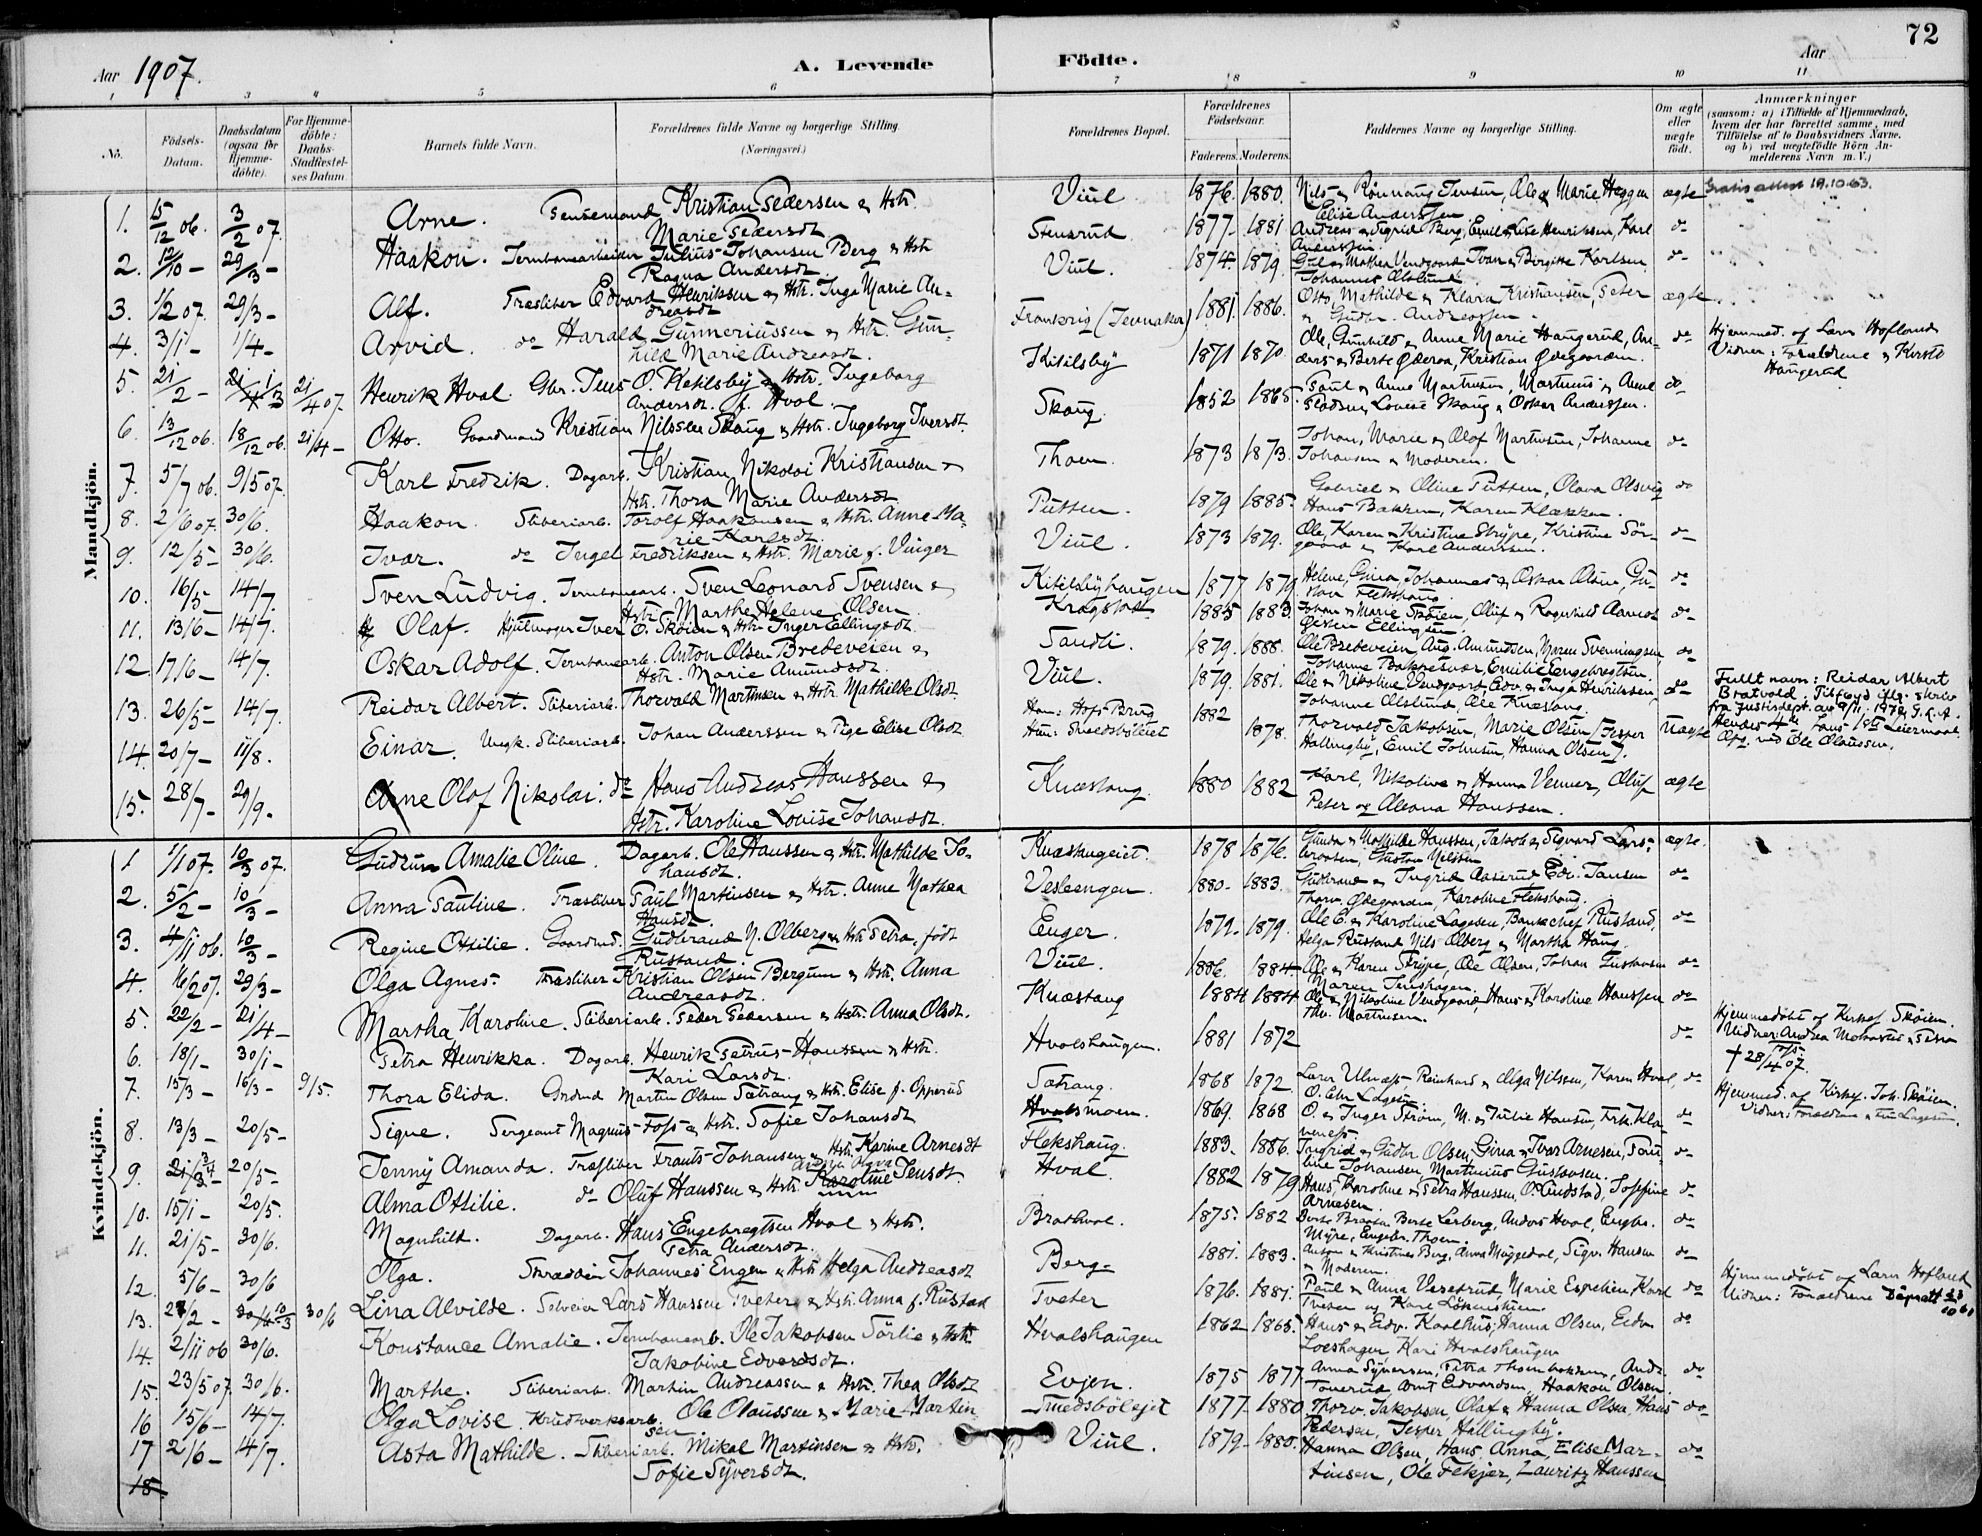 72
Aar 1907.
A. Levende Födte.
Aar
1 3 4 5 6 7 8 9 10 11
No.
Födsels-Datum.
Daabsdatum (ogsaa for Hjemme-döbte).
For Hjemme-döbte: Daabs-Stadfæstel-ses Datum.
Barnets fulde Navn.
Forældrenes fulde Navne og borgerlige Stilling. (Næringsvei.)
Forældrenes Bopæl.
Forældrenes Födselsaar.
Faderens. Moderens.
Faddernes Navne og borgerlige Stilling.
Om ægte eller uægte födt.
Anmærkninger
(saasom: a) i Tilfælde af Hjemmedaab, hvem der har forrettet samme, med Tilföielse af to Daabsvidners Navne, og b) ved uægtefödte Börn An-melderens Navn m. V.)
Mandkjön.
1. 15/12 06. 3/2 07. Arne. Kristian Pedersen & Hstr. Marie Pedersdt. Viul 1876. 1880. Nils & Rönnaug Jensen, Ole & Marie Heggen ægte Gratis attest 19.10.63.
Elise Anderssen
2. 12/10 - 29/3 - Haakon. Jernbanearbeider Julius Johansen Berg & Hstr. Ragna Andersdt. Stensrud 1877 - 1881 Andreas & Sigrid Berg, Emil & Lise Henriksen, Karl Anderssen. do
3. 1/2 07. 29/3 - Alf. Træsliber Edvard Henriksen & Hstr. Inga Marie Andreasdt. Viul. 1874. 1879. & Mathea Vendgaard Ivar & Birgitte Karlsen do
4. 3/1 - 1/4 - Arvid. do Harald Gunneriussen & Hstr. Gunhild Marie Andreasdt. (Jevnaker) 1881. 1886. Otto, Mathilde & Klara Kristiansen, Peter & Gudbr. Andreassen. ægte
5. 21/2 - 21/4 07. Henrik Hval. Gbr. Jens O. Ketilsby & Hstr. Ingeborg Andersdt. f. Hval. Kitilsby 1871 1870. Ole, Gunhild & Anne Marie Haugerud, Anders & Berte Öderaa, Kristian Ödegaarden. do Hjemmed. af Lærer Hofland
Vidner: Forældrene & Kirsti Haugerud
6. 13/12 06. 18/12 06. 21/4 - Otto. Gaardmand Kristian Nilssen Skaug & Hstr. Ingeborg Iversdt. Skaug. 1852 1865. Paul & Anne Martinsen, Martinius & Amul Paulsen, Lovise Skaug & Oskar Anderssen. do
7. 5/7 06. 9/5 07. Karl Fredrik. Dagarb. Kristian Nikolai Kristiansen & Hstr. Thora Marie Andersdt. Thoen. 1873 1873. Johan, Marie & Olof Martinsen, Johanne Johansen & Moderen. do
8. 2/6 07. 30/6. Haakon. Sliberiarb. Torolf Haakonsen & Hstr. Anne Marie Karlsdt. Putten. 1879 1885. Gabriel & Oline Putten, Olava Olsvig Hans Bakken, Karen Klækken. do
9. 12/5 - 30/6. Ivar. do Ingel Fredriksen & Hstr. Marie f. Vinger Viul. 1873 1879. Ole, Karen & Kristine Strype, Kristine Sörgaard & Karl Anderssen. do
10. 16/5 14/7. Sven Ludvig. Jernbanearb. Sven Leonard Svensen & Hstr. Marthe Helene Olsen Kitilsbyhaugen 1877 1879 Helene, Gina, Johannes & Oskar Olsen, Gustav Flekshaug do
11. 13/6 - 14/7. Olaf. Hjulmager Iver O. Skoien & Hstr. Inger Ellingsdt. Kragstad 1885 1883. Johan & Marie Skoien, Oluf & Ragnhild Aarnes Gusten Ellingsen. do
12 17/6 - 14/7. Oskar Adolf. Jernbanearb. Anton Olsen Bredeveien & Hstr. Marie Amundsdt. Sandli. 1879. 1888. Ole Bredeveien Aug. Amundsen, Maren Svenningsen, Johanne Emilie Engebregtsen. do
13. 26/5 - 14/7. Reidar Albert. Sliberiarb. Thorvald Martinsen & Hstr. Mathilde Olsdt. Viul. 1879. 1881. Ole & Nikoline Vendgaard Edv. & Inga Henriksen, Johanne Olslund, Ole Knæstang. do Fullt navn: Reidar Albert Bratvold. Tilföyd iflg. skriv fra Justisdept. av
14. 20/7 - 11/8. Einar. Ungk. Sliberiarb. Johan Anderssen & Pige Elise Olsdt. Han: Hofs Brug Hun: Smedsböleiet 1882 1878. Thorvald Jakobsen, Marie Olsen, Jesper Hallingby, Emil Johnsen, Hanna Olsen. Uægte Hendes 4de Hans 1ste Leiermaal. Opg. ved Ole Olaussen.
15. 28/7 - 29/9 - Arne Olof Nikolai. do Hans Andreas Hanssen & Hstr. Karoline Louise Johansdt. Knæstang 1880 1882 Karl, Nikoline & Hanna Venner, Oluf Peter og Oleana Hanssen. ægte
Kvindekjön.
1 1/1 07. 10/3 07. Gudrun Amalie Oline. Dagarb. Ole Hanssen & Hstr. Mathilde Johansdt. Knæshugeiet. 1878 1876. Gunda & Mathilde Hanssen, Jakob & Sigvard Larsen, Gustav Nilssen ægte
2. 5/2 - 10/3 - Anna Pauline. Træsliber Paul Martinsen & Hstr. Anne Mathea Hansdt. Vesleengen. 1880 - 1883. Gudbrand & Ingrid Aaserud Edv. Jansen Thorv. Ödegaarden, Karoline Flekshaug. do
3. 4/11 06. 10/3 - Regine Otilie. Gaardmd. Gudbrand N. Olberg & Hstr. Petra, född Rustand. Enger. 1872. 1879. Ole E. & Karoline Lagesen, Bankchef Rustand, Helga Rustand Nils Olberg & Martha Haug. do
4. 16/2 07. 29/3 - Olga Agnes. Træsliber Kristian Olsen Bergum & Hstr. Anna Andreasdt. Viul. 1886. 1884. Ole & Karen Strype, Ole Olsen, Johan Gustavsen Maren Jenshagen. do
5. 22/2 - 21/4 - Martha Karoline. Sliberiarb. Peder Pedersen & Hstr. Anna Olsdt. Knæstang 1884 1884 Ole & Nikoline Vendgaard, Hans & Karoline Hanssen Thv. Martinsen. do
6. 18/1 - 30/1 - Petra Henrikka. Dagarb. Henrik Petrus Hanssen & Hstr. Kari Larsdt. Hvalshaugen. 1881 1872 do Hjemmedöbt af Kirkes. Skoien. Vidner: Andrea & Petra
† 28/4 07.
7. 15/3 - 16/3 - 9/5. Thora Elida. Grdmd Martin Olsen Sætrang & Hstr. Elise f. Opperud Sætrang. 1868 1872 Lærer Ulnæss, Reinhard & Olga Nilssen, Karen Hval, O. Chr. Lagesen. do Hjemmed. af Kirkes. Joh. Skoien.
8. 13/3 - 20/5 - Signe. Sergeant Magnus Foss & Hstr. Sofie Johansdt Hvalsmoen. 1869. 1868 O. & Inger Ström, M. & Julie Hansen, Frk. Klaveness. do
9. 21/3 - 20/5 - Jenny Amanda. Træsliber Frants Johansen & Hstr. Karine Arnesdt Flekshaug. 1883. 1886. Ingrid & Gudbr Olsen, Gina & Ivar Arnesen, Pauline Johansen, Martinius Gustavsen. do
10. 15/1 - 20/5. Alma Otilie. do Oluf Hanssen & Hstr. Karoline Jensdt. Hval. 1882 1879 Hans, Karoline & Petra Hanssen, O. Lindstad, Josefine Arnesen. do
11. 21/5 - 30/6. Magnhild. Dagarb. Hans Engebregtsen Hval & Hstr. Petra Andersdt. Brathval. 1875. 1882 Berte Braaten Berte Lerberg, Anders Hval, Engbr. Myre, Engebr. Thoen. do
12. 5/6 - 30/6 Olga. Skrædder Johannes Engen & Hstr. Helga Andreasdt Berg. 1881. 1883. Anton & Kristine Berg, Anna Muggedal, Sigv. Hansen & Moderen. do
13. 2/2 - 10/3 30/6 Lina Alvilde. Selveier Lars Hanssen Tveter & Hstr. Anna f. Rustad Tveter 1876. 1881. Paul & Anna Vesetrud, Marie Espelien, Karl Tveter og Karl do Hjemmedöbt af Lærer Hofland
Vidner: Forældrene Dåpsatt.
14. 2/11 06 30/6. Konstance Amalie. Jernbanearb. Ole Jakobsen Sörlie & Hstr. Jakobine Edvardsdt. Hvalshaugen 1862 1865. Hans & Edv. Kaalhus, Hanna Olsen, Edv. Loeshagen Kari Hvalshaugen do
15. 23/5 07. 30/6. Marthe. Sliberiarb. Martin Andreassen & Hstr. Thea Olsdt Evjen. 1875 1877. Anna Syversen, Petra Thoenbakken, Andr. Tanerud Arnt Edvardsen, Haakon Olsen. do
16 15/6 - 14/7. Olga Lovise. Krudtverksarb. Ole Olaussen & Marie Martinsen Smedsbölejet 1877. 1880. Thorv. Jakobsen, Olaf & Hanna Olsen, Hans Pedersen, Jesper Hallingby. do
17 2/6 - 14/7. Asta Mathilde. Sliberiarb. Mikal Martinsen & Hstr. Sofie Syversdt. Viul. 1879 - 1880. Hanna Olsen, Hans, Anna, Elise Martinsen, Ole Fekjer, Lauritz Hanssen do
18.